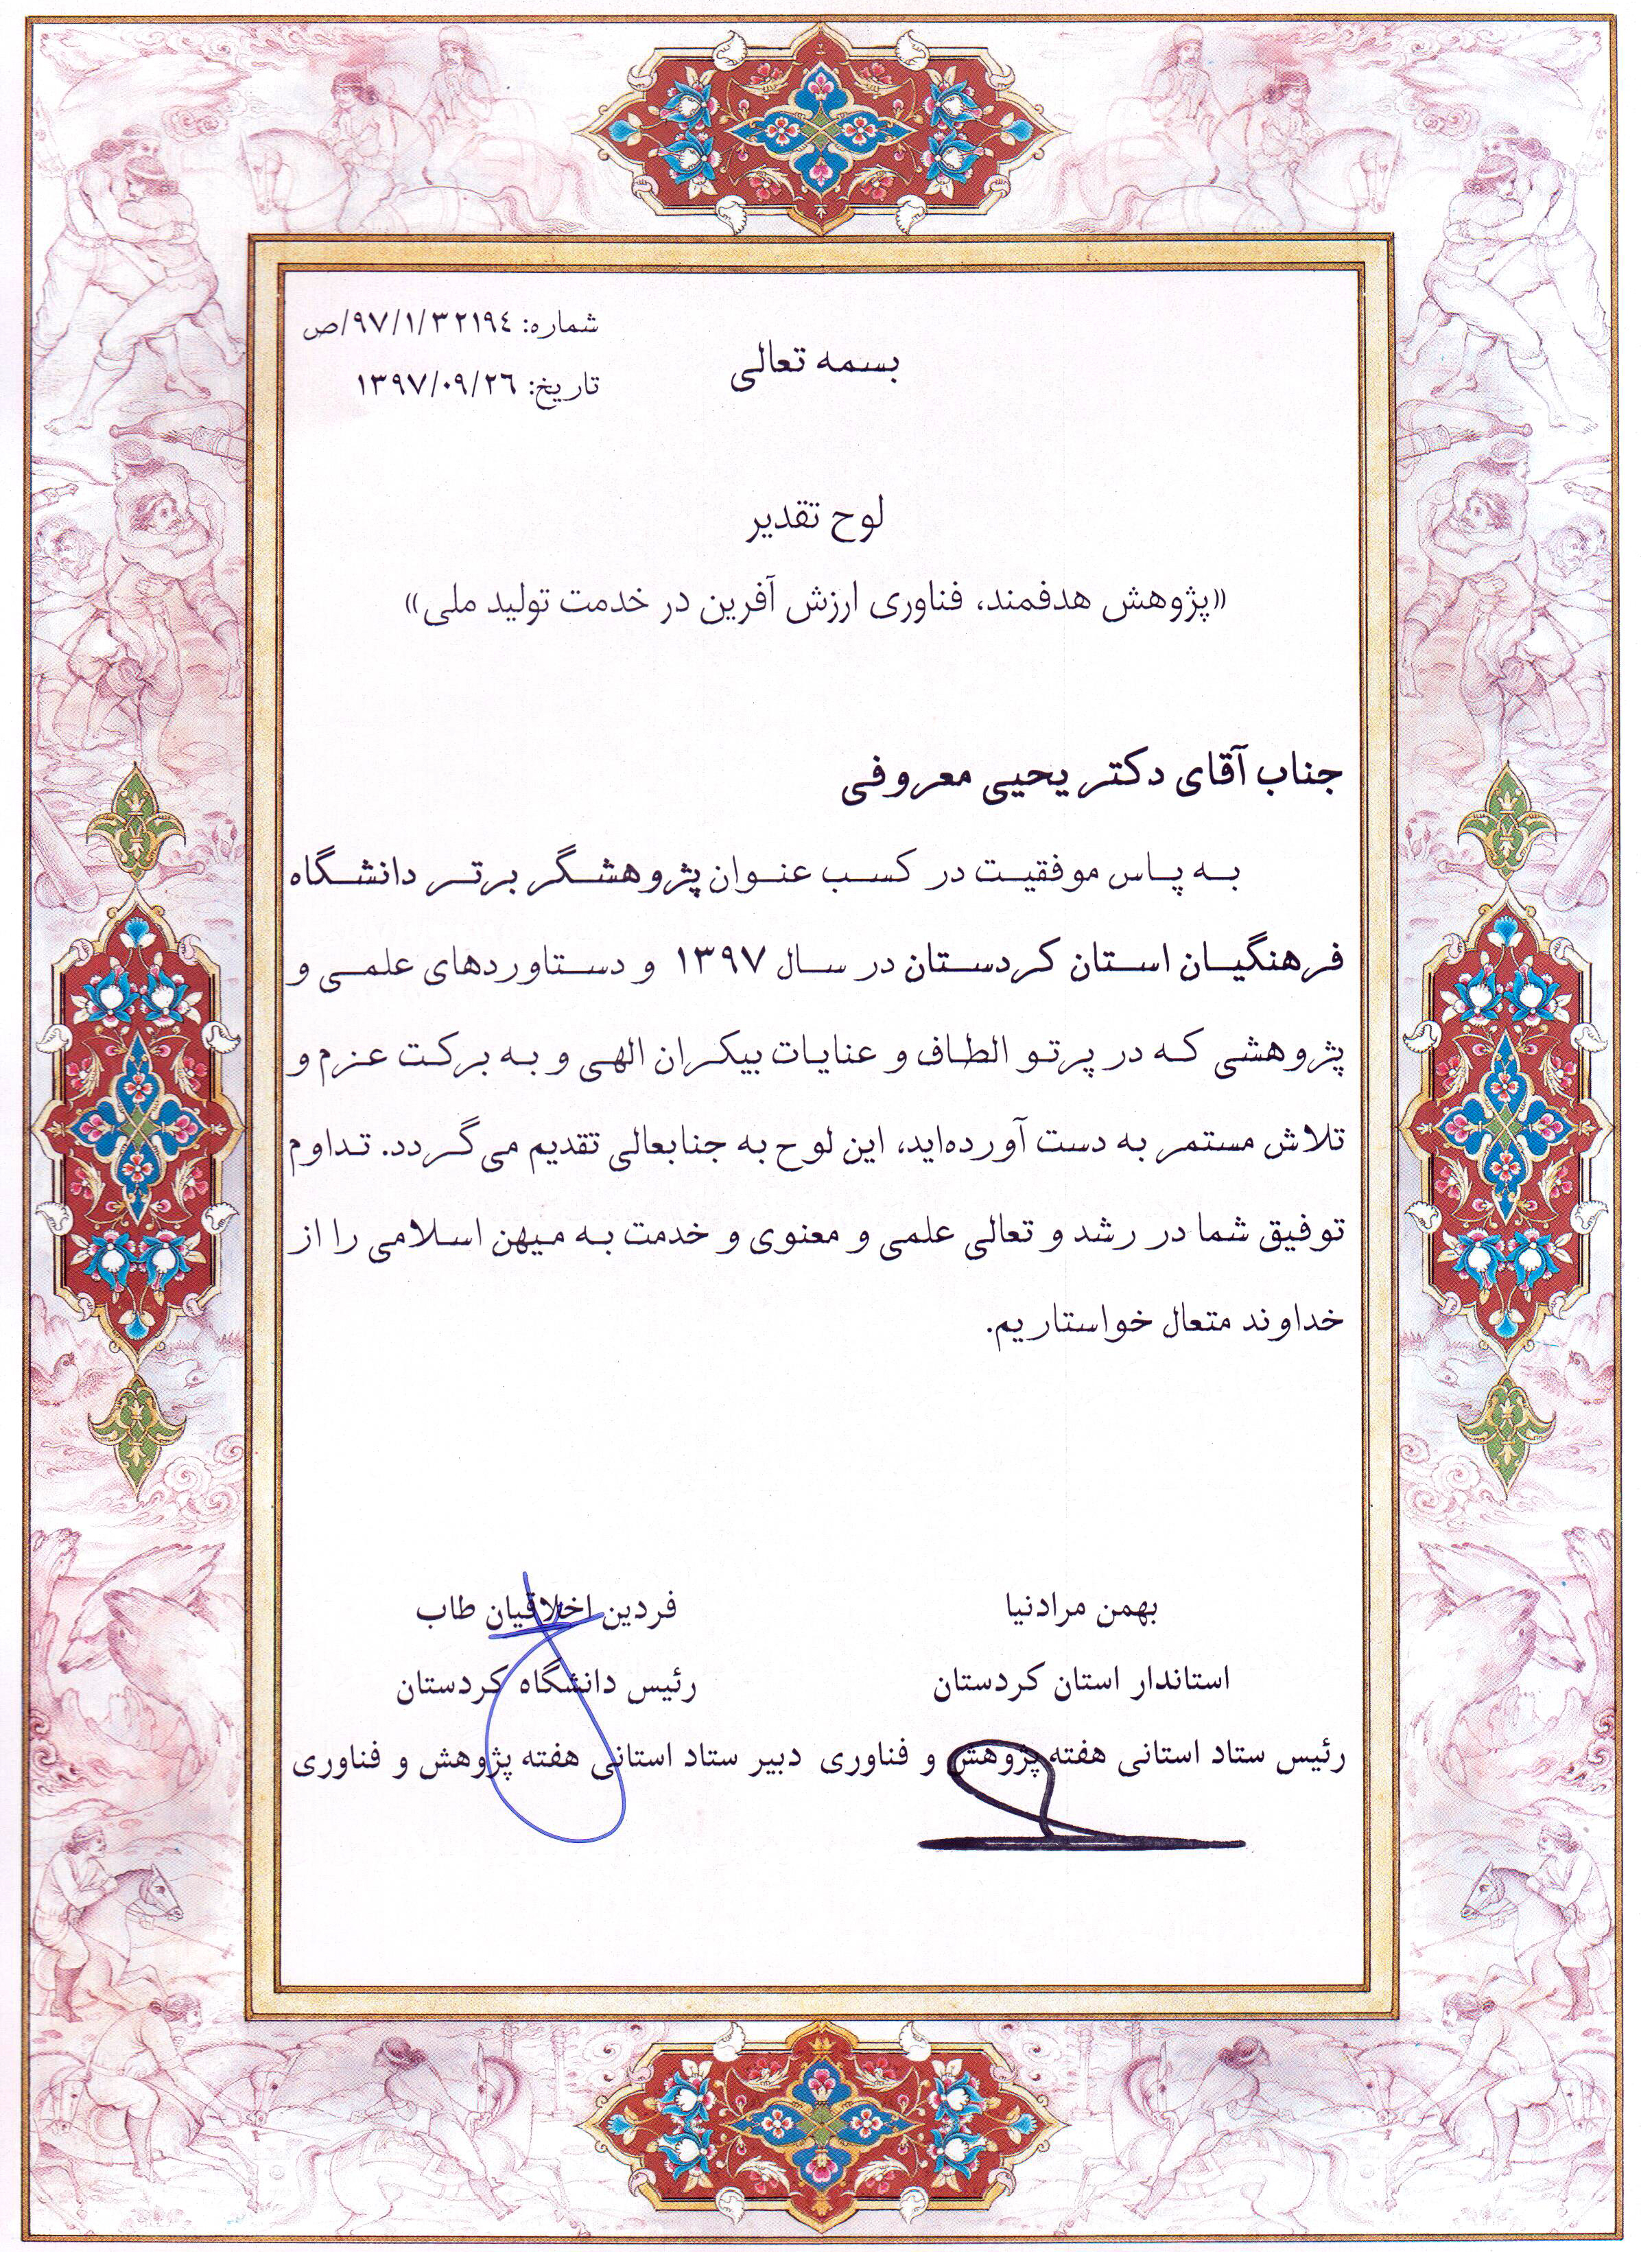 شماره: ۹۷/۱/۳۲۱۹٤/ص
بسمه تعالی
تاریخ: ۱۳۹۷/۰۹/۲٦
لوح تقدیر
«پژوهش هدفمند، فناوری ارزش آفرین در خدمت تولید ملی»
جناب آقای دکتر یحیی معروفی
به پاس موفقیت در کسب عنوان پژوهشگر برتر دانشگاه
فرهنگیان استان کردستان در سال ۱۳۹۷ و دستاوردهای علمی و
پژوهشی که در پرتو الطاف و عنایات بیکران الهی و به برکت عزم و
تلاش مستمر به دست آورده‌اید، این لوح به جنابعالی تقدیم می‌گردد. تداوم
توفیق شما در رشد و تعالی علمی و معنوی و خدمت به میهن اسلامی را از
خداوند متعال خواستاریم.
بهمن مرادنیا
استاندار استان کردستان
رئیس ستاد استانی هفته پژوهش و فناوری
فردین اخلاقیان طاب
رئیس دانشگاه کردستان
دبیر ستاد استانی هفته پژوهش و فناوری